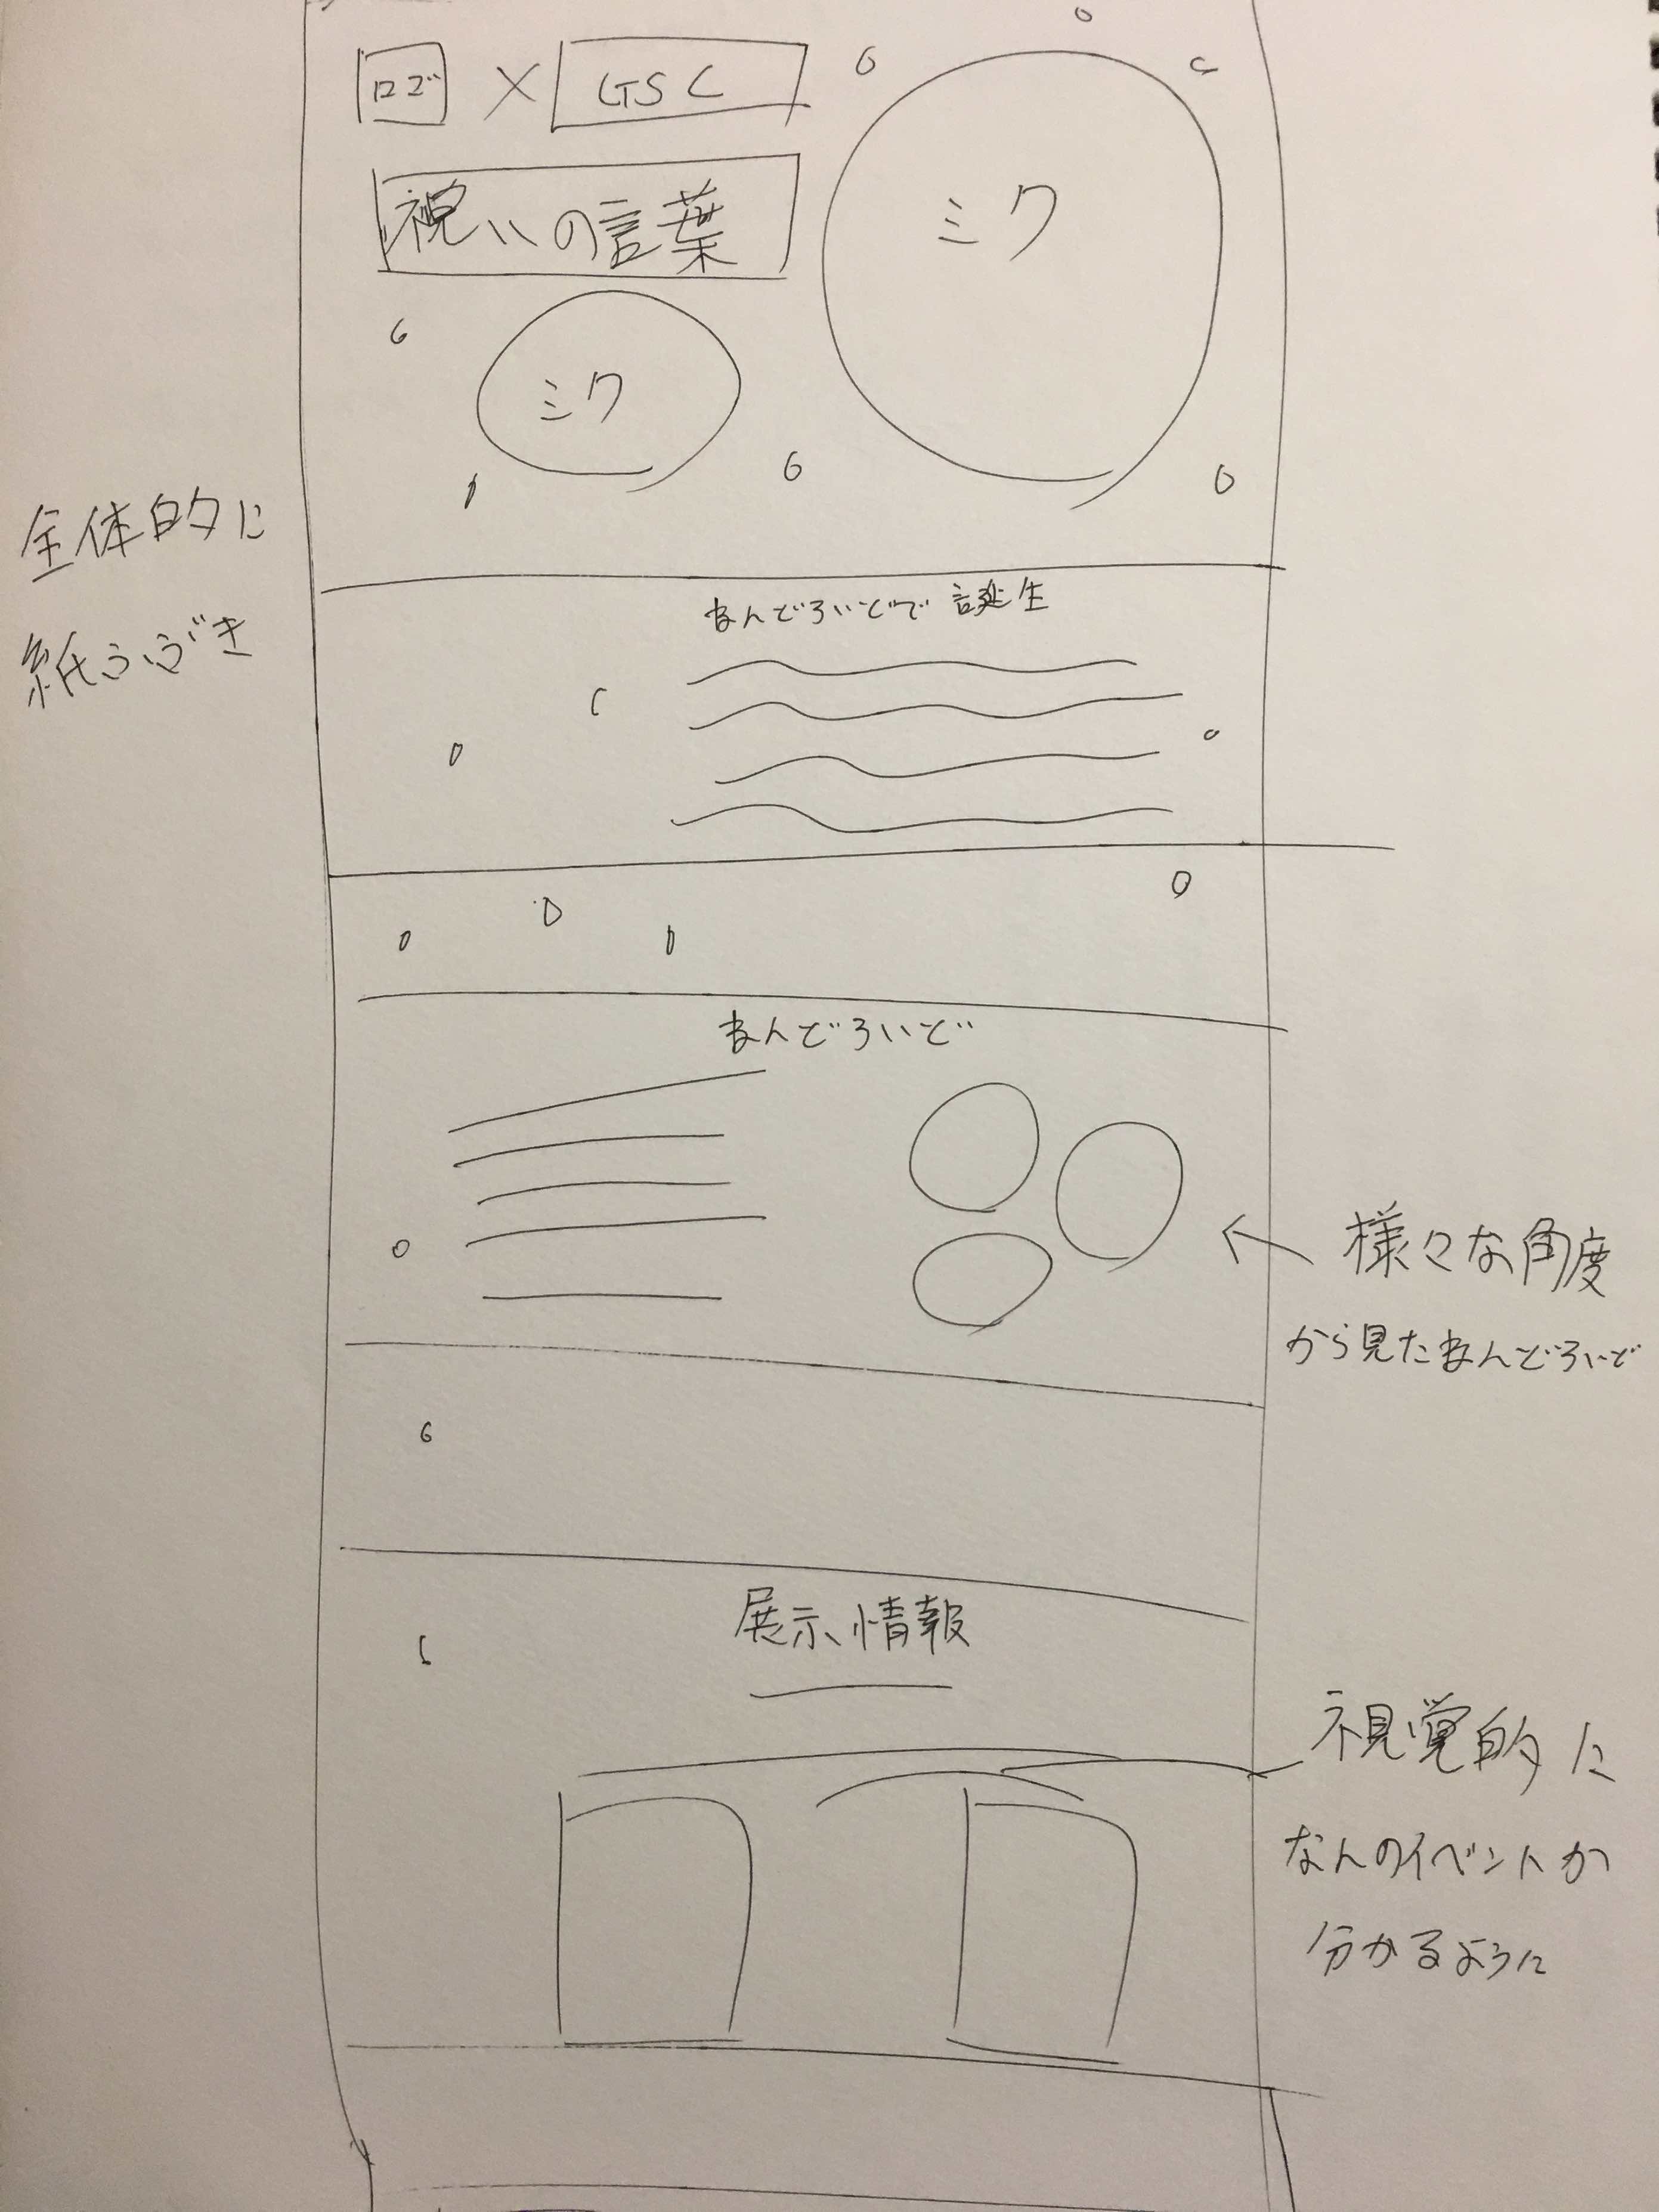 ロゴ × GSC
祝いの言葉
ミク
ミク
全体的に
紙ふぶき
ねんどろいどで誕生
ねんどろいど
様々な角度
から見たねんどろいど
展示情報
視覚的に
なんのイベントか
分かるように